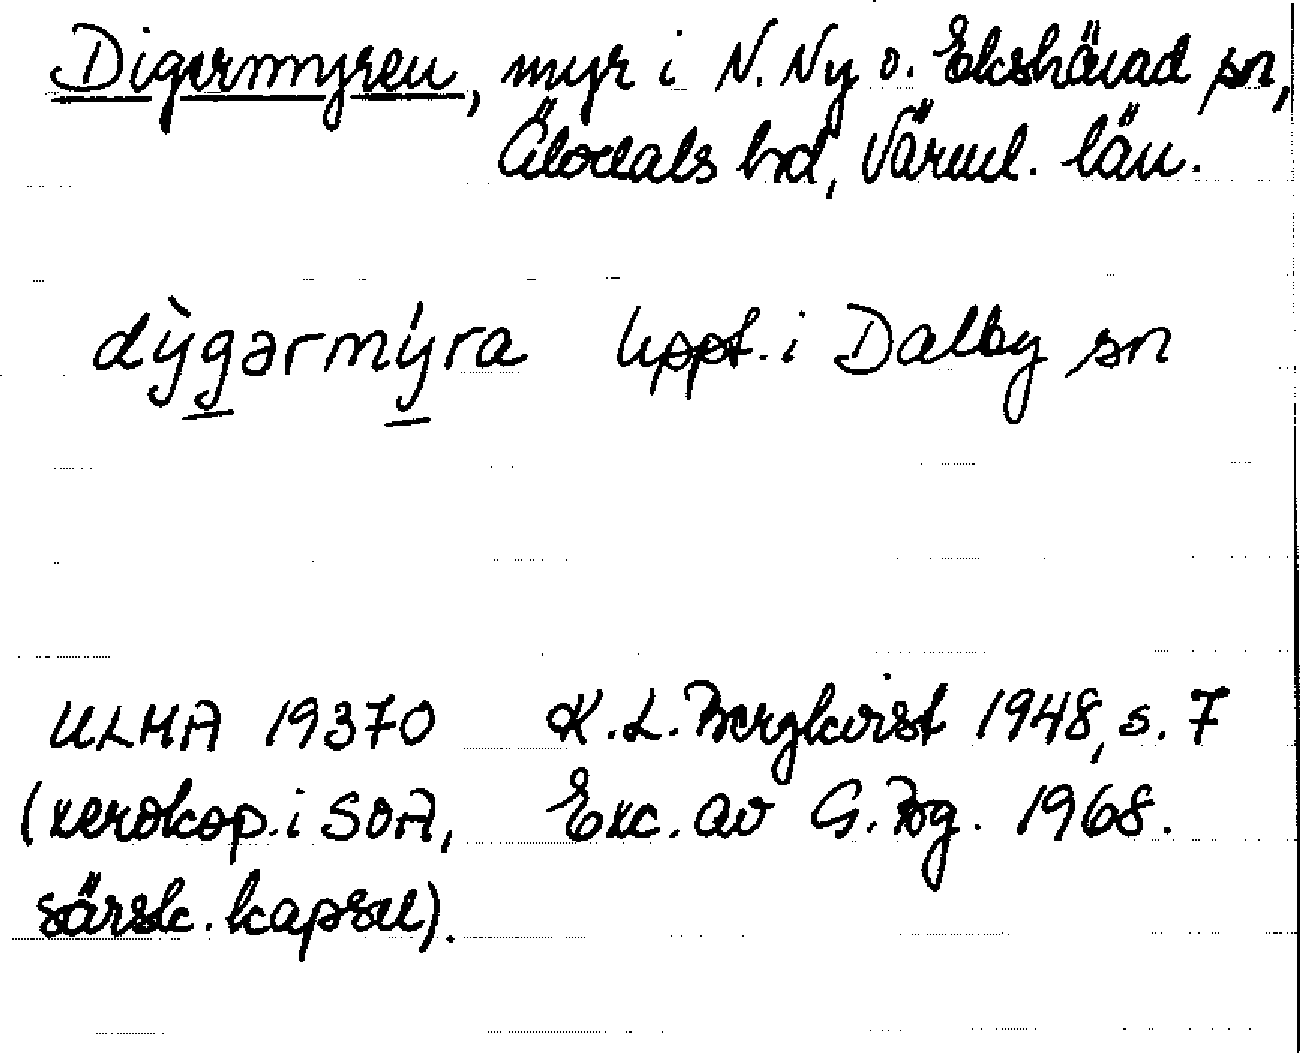 Digermyren, myr i N. Ny o. Ekshärad sn,
Älvdals hd, Värml. län.
dỳgərmýra uppt. i Dalby sn
ULMA 19370 K. L. Bergkvist 1948, s. 7
(xerokop. i SOA, Exc. av G. Bg. 1968.
särsk. kapsel).